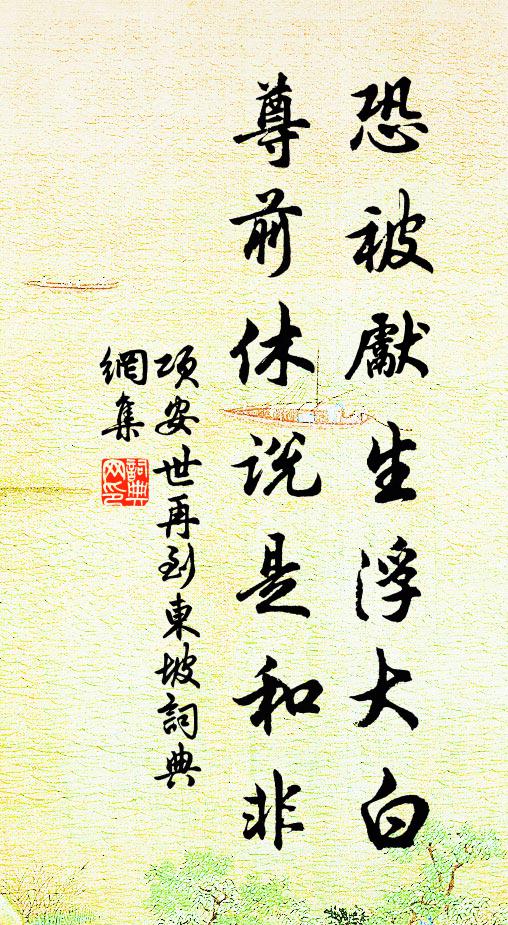 恐被獻生浮大白
尊前休说是和非
项安世再到東坡詞典
網集
詞典
网印